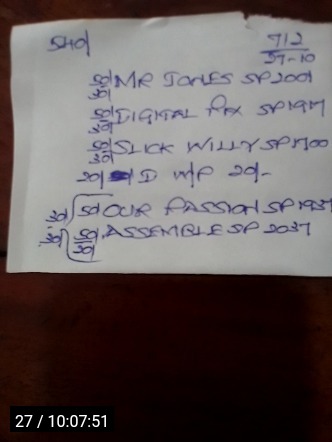 SHO/ 712
37-10
50/ 30/ MR JONES SP 2001
50/ 30/ DIGITAL FOX SP 1917
50/ 30/ SLICK WILLY SP 1700
20/ D W/P 20/-
30/ 50/ OUR PASSION SP 1937
30/ 50/ 20/ ASSEMBLE SP 2037
27 / 10:07:51